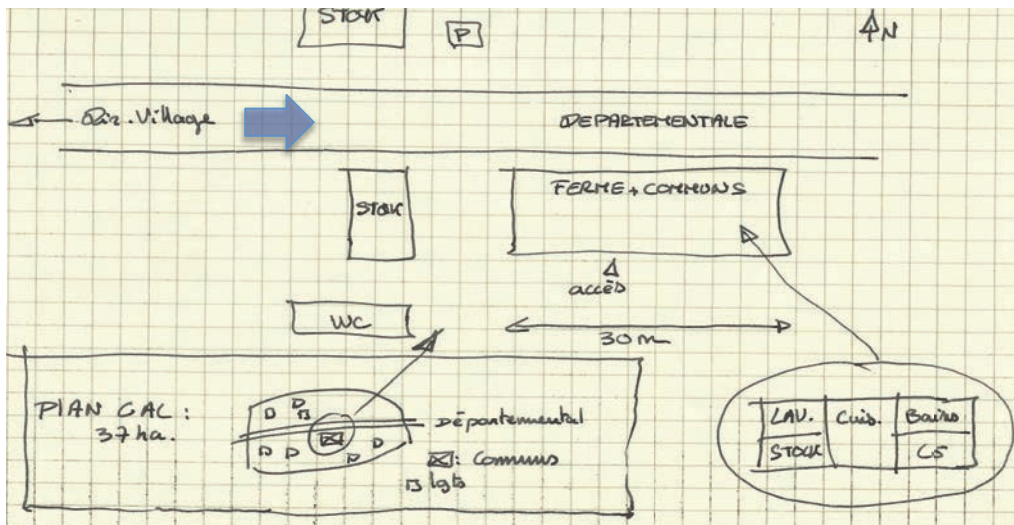 STOK
P
N
Dir. Village
DEPARTEMENTALE
STOK
FERME + COMMUNS
accès
WC
30 m
PLAN GAL :
37 ha.
Départemental
: Communs
lgts
LAV. Cuis. Bains
STOCK